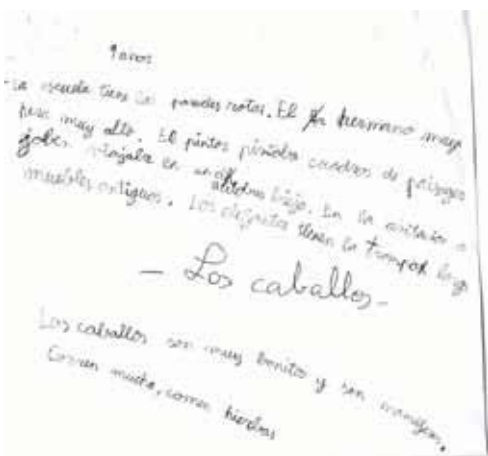 9 años
La escuela tiene las paredes rotas. El hermano mayo
hera muy alto. El pintor pintaba cuadros de paisages
joben viajaba en un viejo. En la
muebles antiguos. Los elefantes tienen la trompa larga
- Los caballos -
Los caballos son muy bonitos y son
Comen mucho, comen hierbas